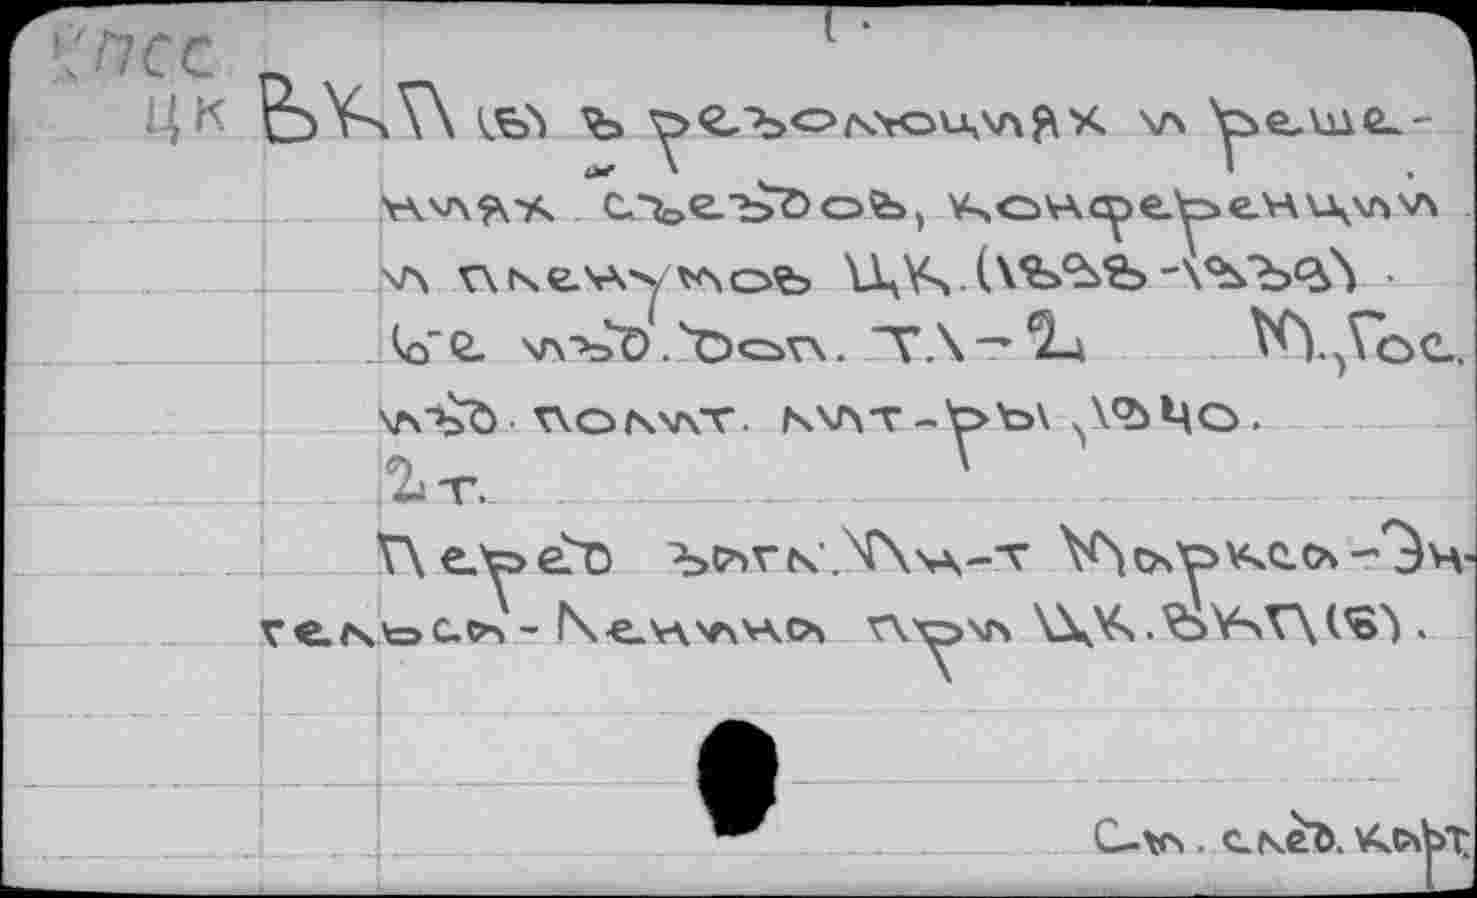 КПСС
ЦК ВКП(б) в резолюциях и реше-
ниях съездов, конференций
и пленумов ЦК. (1898-1939)
6-е изд. доп. Т.1-2. М., Гос.
изд. полит. лит-ры, 1940.
2 т.
Перед загл: Ин-т Маркса-Эн-
гельса-Ленина при ЦК.ВКП(б).
См. след. карт.